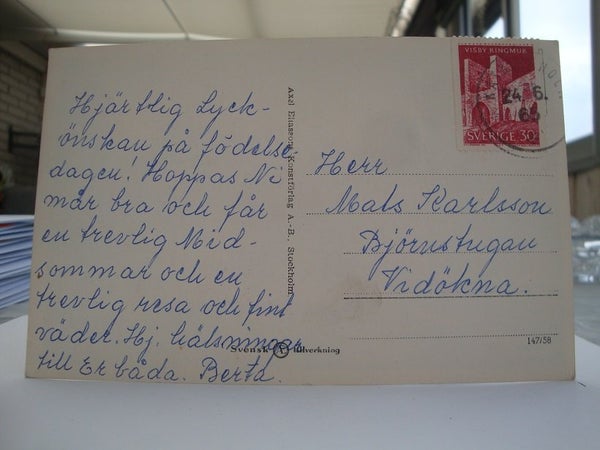 Hjärtlig Lyck-
önskan på födelse-
dagen! Hoppas Ni
mår bra och får
en trevlig Mid-
sommar och en
trevlig resa och fint
väder. Hj. hälsningar
till Er båda. Berta.
Axel Eliassons Konstförlag A.-B., Stockholm
Svensk tillverkning
VISBY RINGMUR
24.6.
65
SVERIGE 30
Herr
Mats Karlsson
Björnstugan
Vidökna.
147/58